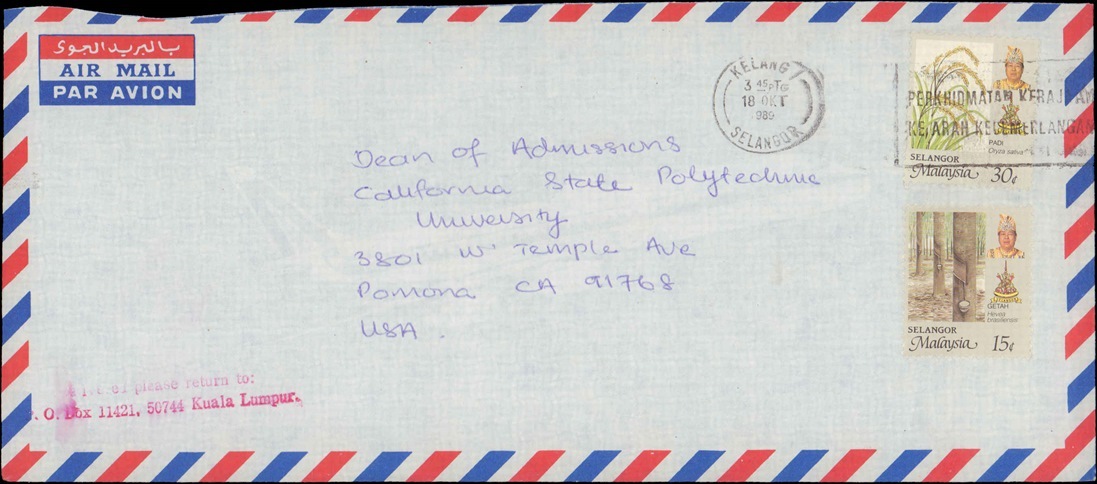 بالبريد الجوي
AIR MAIL
PAR AVION
KELANG
3 45 PTG
18 OKT
1989
SELANGOR
PERKHIDMATAN KERAJAAN
KE ARAH KECEMERLANGAN
PADI
Oryza sativa
SELANGOR
Malaysia 30¢
GETAH
Hevea
brasiliensis
SELANGOR
Malaysia 15¢
Dean of Admissions
California State Polytechnic
University
3801 W Temple Ave
Pomona CA 91768
USA.
please return to:
P. O. Box 11421, 50744 Kuala Lumpur.